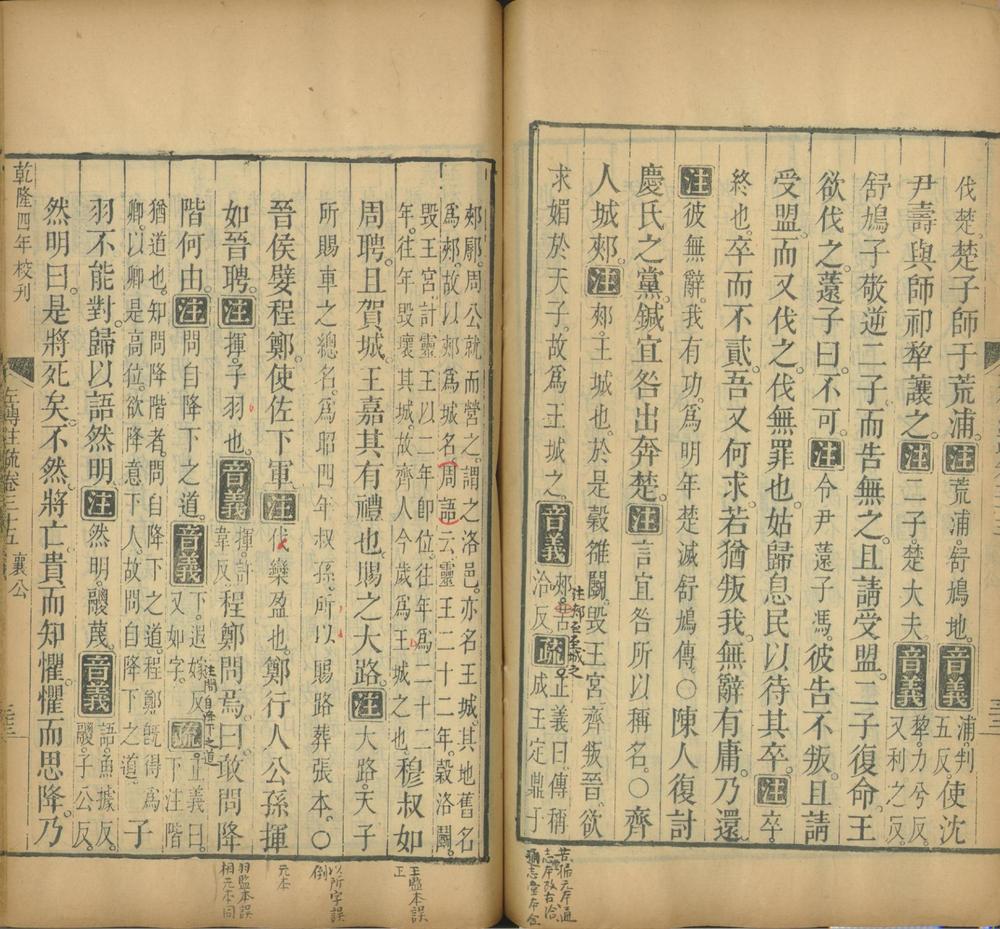 伐楚。楚子師于荒浦。注荒浦。舒鳩地。音義浦。判五反。使沈
尹壽與師祁犂讓之。注二子。楚大夫。音義犂。力兮反。又利之反。
舒鳩子敬逆二子。而告無之。且請受盟。二子復命。王
欲伐之。薳子曰。不可。注令尹薳子馮。彼告不叛。且請
受盟。而又伐之。伐無罪也。姑歸息民。以待其卒。注卒。
終也。卒而不貳。吾又何求。若猶叛我。無辭有庸。乃還。
注彼無辭。我有功。爲明年楚滅舒鳩傳。○陳人復討
慶氏之黨。鍼宜咎出奔楚。注言宜咎所以稱名。○齊
人城郟。注郟。王城也。於是穀雒鬭。毀王宮。齊叛晉。欲
求媚於天子。故爲王城之。音義郟。古洽反。疏正義曰。傳稱成王定鼎于
郟鄏。周公就而營之。謂之洛邑。亦名王城。其地舊名
爲郟。故以郟爲城名。周語云。靈王二十二年。穀洛鬭。
毀王宮。計靈王以二年卽位。往年爲二十二
年。往年毀壞其城。故齊人今歲爲王城之也。穆叔如
周聘。且賀城。王嘉其有禮也。賜之大路。注大路。天子
所賜車之總名。爲昭四年叔孫。所以賜路葬張本。○
晉侯嬖程鄭。使佐下軍。注代欒盈也。鄭行人公孫揮
如晉聘。注揮。子羽也。音義揮。許韋反。程鄭問焉。曰。敢問降
階何由。注問自降下之道。音義下。遐嫁反。又如字。疏正義曰。下注階
猶道也。知問降階者。問自降下之道。程鄭旣得爲
卿。以卿是高位。欲降意下人。故問自降下之道。子
羽不能對。歸以語然明。注然明。鬷蔑。音義語。魚據反。鬷。子公反。
然明曰。是將死矣。不然。將亡。貴而知懼。懼而思降。乃
乾隆四年校刊
左傳注疏卷三十五 襄公
注郟至城之
注問自降下之道
王監本誤
正
以所字誤
倒
元本
羽監本誤
相元本同